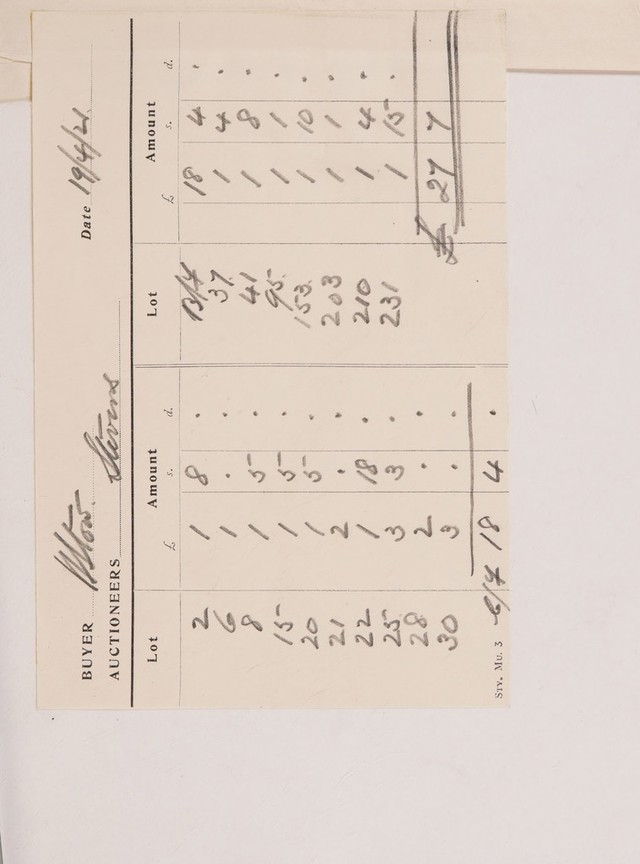 BUYER Stow. Date 19/4/21.
AUCTIONEERS Stevens
Lot Amount Lot Amount
£ s. d. £ s. d.
2 1 8 . B/F 18 4 .
6 1 . . 37 1 4 .
8 1 5 . 41 1 8 .
15 1 5 . 95 1 1 .
20 1 5 . 153 1 10 .
21 2 . . 203 1 1 .
22 1 18 . 210 1 4 .
25 3 3 . 231 1 15 .
28 2 . . £ 27 7
30 3 . .
C/F 18 4 .
STY. MU. 3